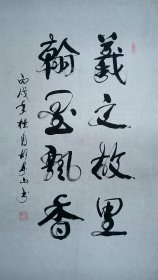 羲文故里
翰墨飘香
丙戌年